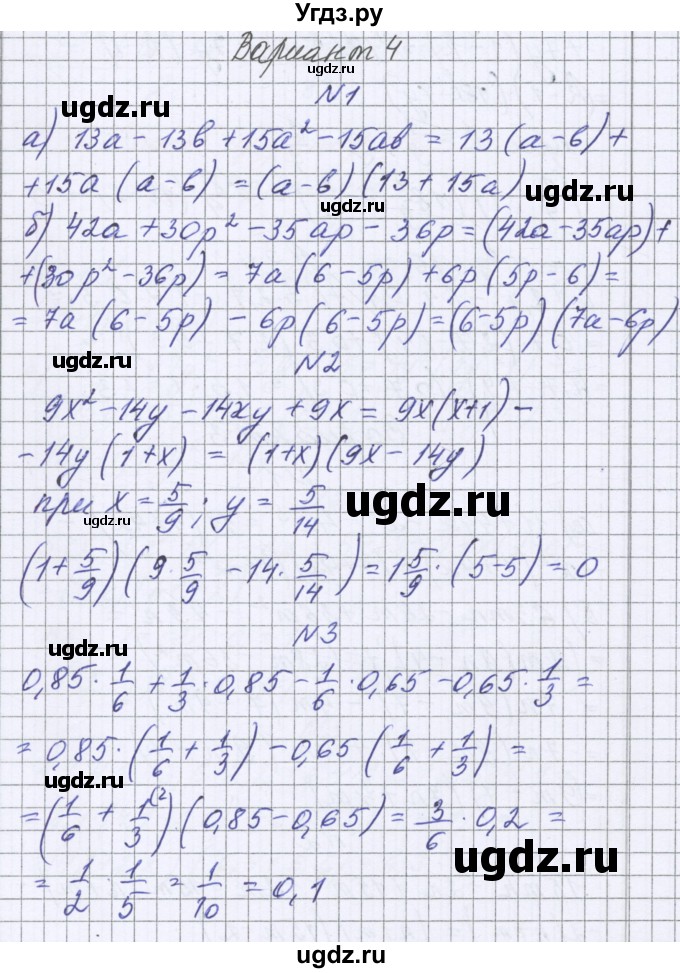 Угдз.ру
Вариант 4
ugdz.ru
N1
ugdz.ru
а) 13a - 13в + 15a² - 15aв = 13(a-в)+
+15a (a-в) = (a-в)(13+15a)
ugdz.ru
б) 42a + 30p² - 35ap - 36p = (42a-35ap)+
+(30p² - 36p) = 7a(6-5p)+6p(5p-6)=
= 7a(6-5p) - 6p(6-5p)=(6-5p)(7a-6p)
ugdz.ru
N2
9x² - 14y - 14xy + 9x = 9x(x+1) -
- 14y(1+x) = (1+x)(9x-14y)
при x = 5/9; y = 5/14
ugdz.ru
ugdz.ru
(1+5/9)(9·5/9 - 14·5/14) = 1 5/9·(5-5) = 0
N3
ugdz.ru
0,85·1/6 + 1/3·0,85 - 1/6·0,65 - 0,65·1/3 =
ugdz.ru
= 0,85·(1/6 + 1/3) - 0,65(1/6 + 1/3) =
ugdz.ru
= (1/6 + 1/3 (2)(0,85-0,65) = 3/6·0,2 =
ugdz.ru
= 1/2·1/5 = 1/10 = 0,1
ugdz.ru